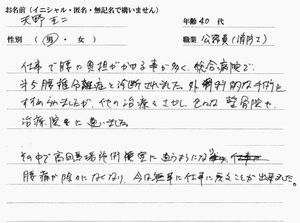 お名前（イニシャル・匿名・無記名で構いません）
天野 年齢 40 代
性別（ 男 ・ 女 ） 職業 公務員（消防士）
仕事で腰に負担がかかる事が多く、総合病院で、
第5腰椎分離症と診断されました。外科的な手術を
すすめられましたが、他の治療をさがし、色々な整骨院や、
治療院等に通いました。
その中で高田馬場 に通うようになり、
腰痛が除々になくなり、今は無事に仕事に戻ることが出来ました。